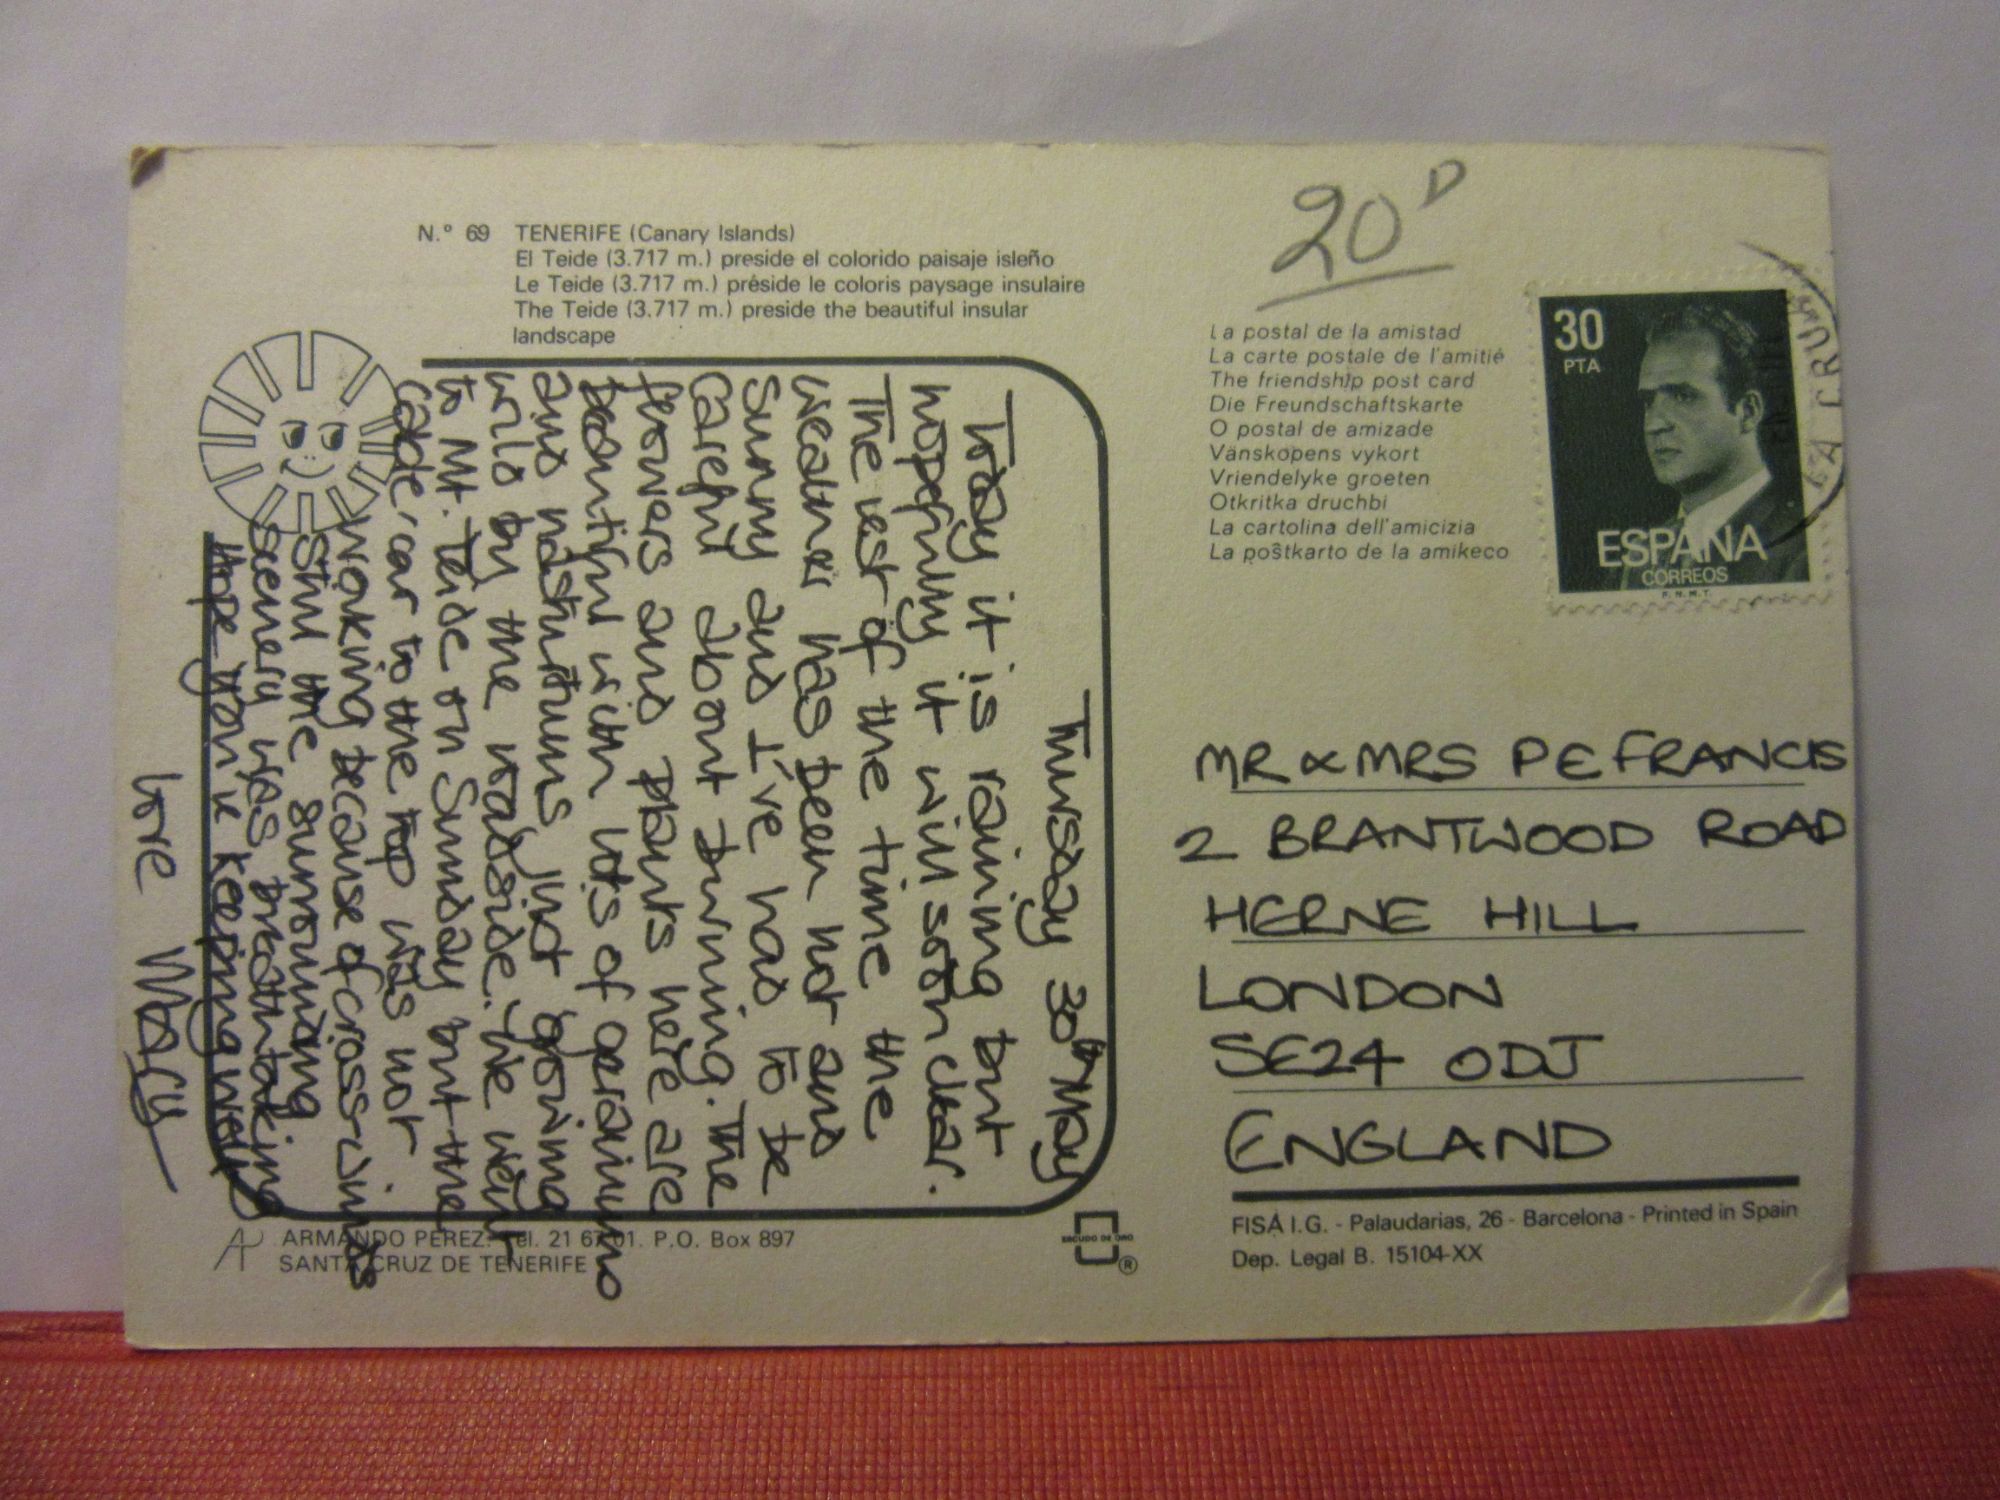 N.º 69 TENERIFE (Canary Islands)
El Teide (3.717 m.) preside el colorido paisaje isleño
Le Teide (3.717 m.) préside le coloris paysage insulaire
The Teide (3.717 m.) preside the beautiful insular
landscape
Thursday 30th May
Today it is raining but
hopefully it will soon clear.
The rest of the time the
weather has been hot and
sunny and I've had to be
careful about burning. The
flowers and plants here are
beautiful with lots of geranium
and nasturtiums just growing
wild by the roadside. We went
to Mt. Teide on Sunday but the
cable car to the top was not
working because of cross-winds
Still the surrounding
scenery was breathtaking
Hope you're keeping well
Love Mary
20P
La postal de la amistad
La carte postale de l'amitié
The friendship post card
Die Freundschaftskarte
O postal de amizade
Vänskopens vykort
Vriendelyke groeten
Otkritka druchbi
La cartolina dell'amicizia
La poŝtkarto de la amikeco
30
PTA
ESPAÑA
CORREOS
F.N.M.T.
MR & MRS P E FRANCIS
2 BRANTWOOD ROAD
HERNE HILL
LONDON
SE24 0DJ
ENGLAND
ARMANDO PEREZ. Tel. 21 67 01. P.O. Box 897
SANTA CRUZ DE TENERIFE
ESCUDO DE ORO
®
FISA I.G. - Palaudarias, 26 - Barcelona - Printed in Spain
Dep. Legal B. 15104-XX